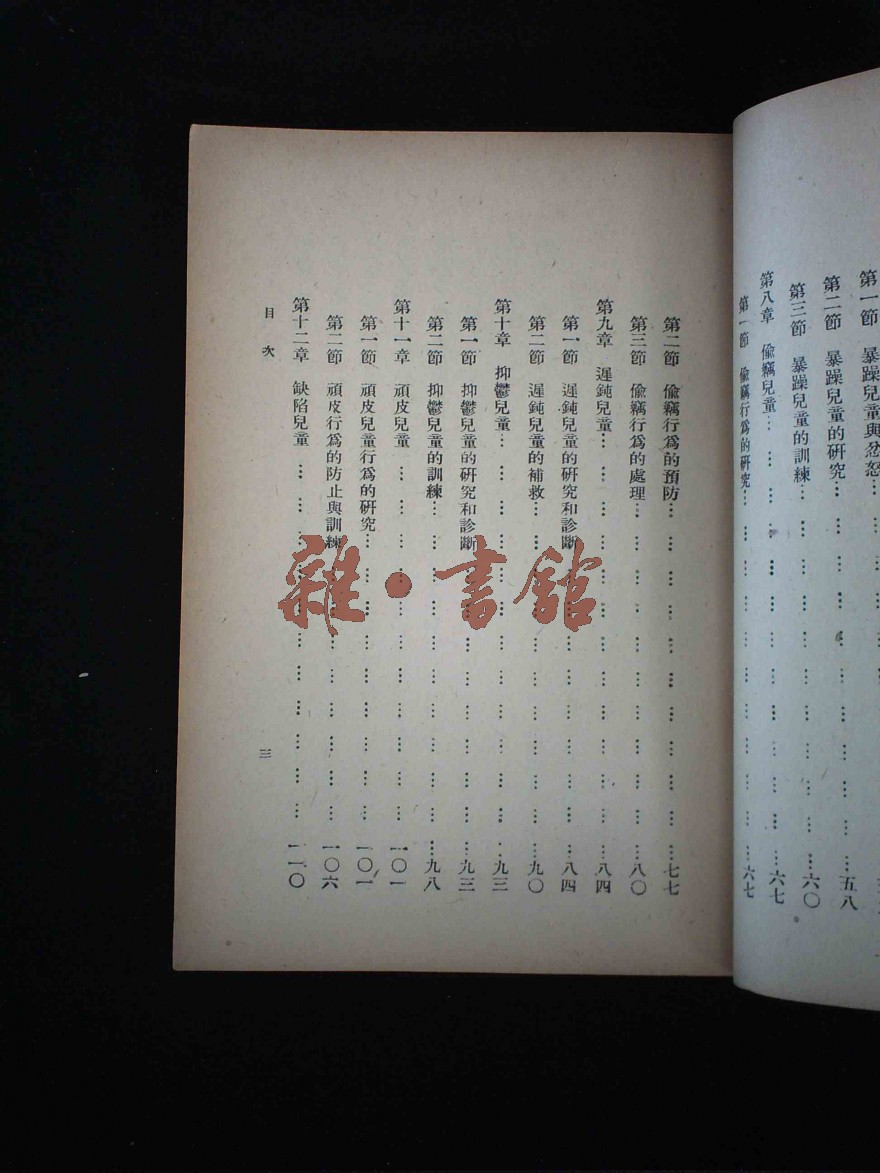 第一節　暴躁兒童與忿怒
第二節　暴躁兒童的研究……五八
第三節　暴躁兒童的訓練……六〇
第八章　偷竊兒童……六七
第一節　偷竊行爲的研究……六七
第二節　偷竊行爲的預防……七七
第三節　偷竊行爲的處理……八〇
第九章　遲鈍兒童……八四
第一節　遲鈍兒童的研究和診斷……八四
第二節　遲鈍兒童的補救……九〇
第十章　抑鬱兒童……九三
第一節　抑鬱兒童的研究和診斷……九三
第二節　抑鬱兒童的訓練……九八
第十一章　頑皮兒童……一〇一
第一節　頑皮兒童行爲的研究……一〇一
第二節　頑皮行爲的防止與訓練……一〇六
第十二章　缺陷兒童……一一〇
目次
三
雜·書館